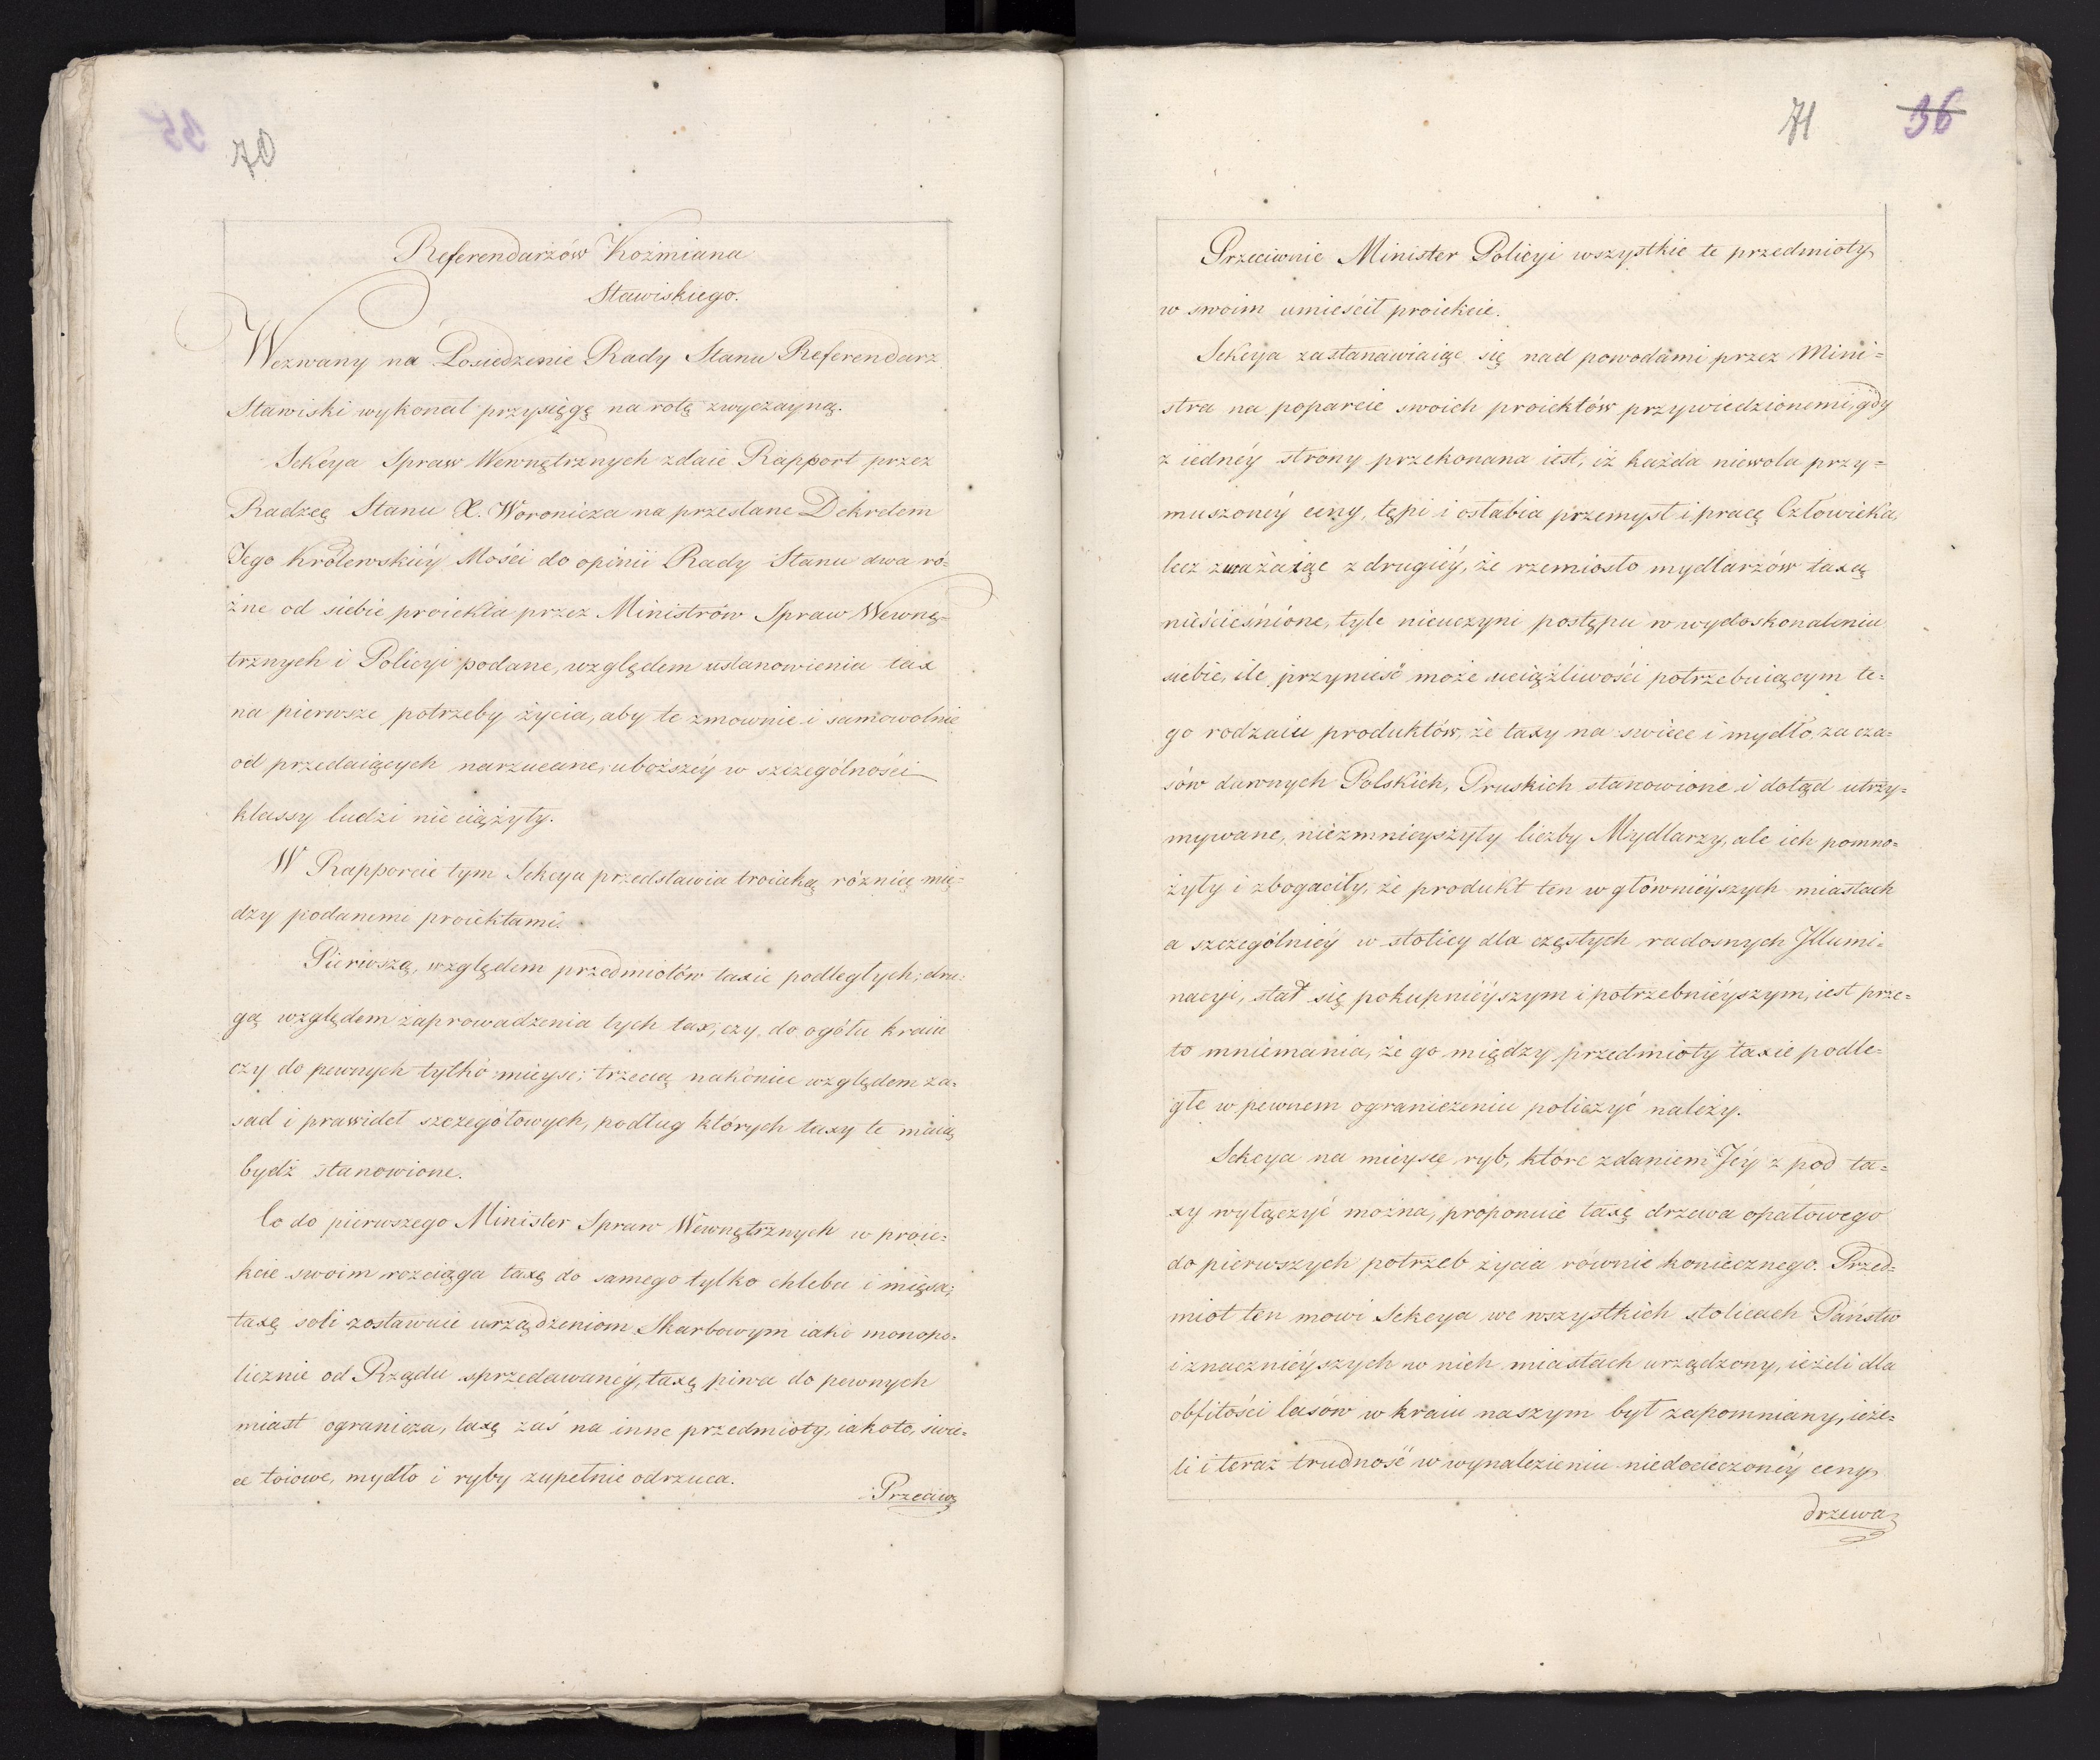 70
Referendarzów Koźmiana
Stawiskiego.
Wezwany na Posiedzenie Rady Stanu Referendarz
Stawiski wykonał przysięgę na rotę zwyczayną.
Sekcya Spraw Wewnętrznych zdaie Rapport przez
Radzcę Stanu X. Woronicza na przesłane Dekretem
Jego Królewskiéy Mości do opinii Rady Stanu dwa ró-
żne od siebie proiekta przez Ministrów Spraw Wewnę-
trznych i Policyi podane, względem ustanowienia tax
na pierwsze potrzeby życia, aby te zmownie i samowolnie
od przedaiących narzucane, uboższéy w szczególności
klassy ludzi nie ciążyły.
W Rapporcie tym Sekcya przedstawia troiaką różnicę mię-
dzy podanemi proiektami.
Pierwszą, względem przedmiotów taxie podległych; dru-
gą względem zaprowadzenia tych tax, czy do ogółu kraiu
czy do pewnych tylko mieysc; trzecią nakoniec względem za-
sad i prawideł szczegółowych, podług których taxy te maią
bydź stanowione.
Co do pierwszego Minister Spraw Wewnętrznych w proie-
kcie swoim rozciąga taxę do samego tylko chleba i mięsa;
taxę soli zostawuie urządzeniom Skarbowym iako monopo-
licznie od Rządu sprzedawanéy, taxę piwa do pewnych
miast ogranicza, taxę zaś na inne przedmioty, iakoto, świe-
ce łoiowe, mydło i ryby zupełnie odrzuca.
Przeciw
71 36
Przeciwnie Minister Policyi wszystkie te przedmioty
w swoim umieścił proiekcie.
Sekcya zastanawiaiąc się nad powodami przez Mini=
stra na poparcie swoich proiektów przywiedzionemi, gdy
z iednéy strony przekonana iest, iż każda niewola przy=
muszonéy ceny, tępi i osłabia przemysł i pracę Człowieka,
lecz zważaiąc z drugiéy, że rzemiosło mydlarzów taxą
nieścieśnione, tyle nieuczyni postępu w wydoskonaleniu
siebie, ile przynieść może uciążliwości potrzebuiącym te-
go rodzaiu produktów, że taxy na świece i mydło, za cza-
sów dawnych Polskich, Pruskich stanowione i dotąd utrzy=
mywane, niezmnieyszyły liczby Mydlarzy, ale ich pomno=
żyły i zbogaciły, że produkt ten w głównieyszych miastach
a szczególniéy w stolicy dla częstych radosnych Jllumi=
nacyi, stał się pokupnieyszym i potrzebnieyszym, iest prze=
to mniemania, że go między przedmioty taxie podle=
głe w pewnem ograniczeniu policzyć należy.
Sekcya na mieysce ryb, które zdaniem Jéy z pod ta=
xy wyłączyć można, proponuie taxę drzewa opałowego
do pierwszych potrzeb życia równie koniecznego. Przed=
miot ten mowi Sekcya we wszystkich stolicach Państw
i znacznieyszych w nich miastach urządzony, ieżeli dla
obfitości lasów w kraiu naszym był zapomniany, ieże=
li i teraz trudność w wynalezieniu niedocieczonéy ceny
drzewa